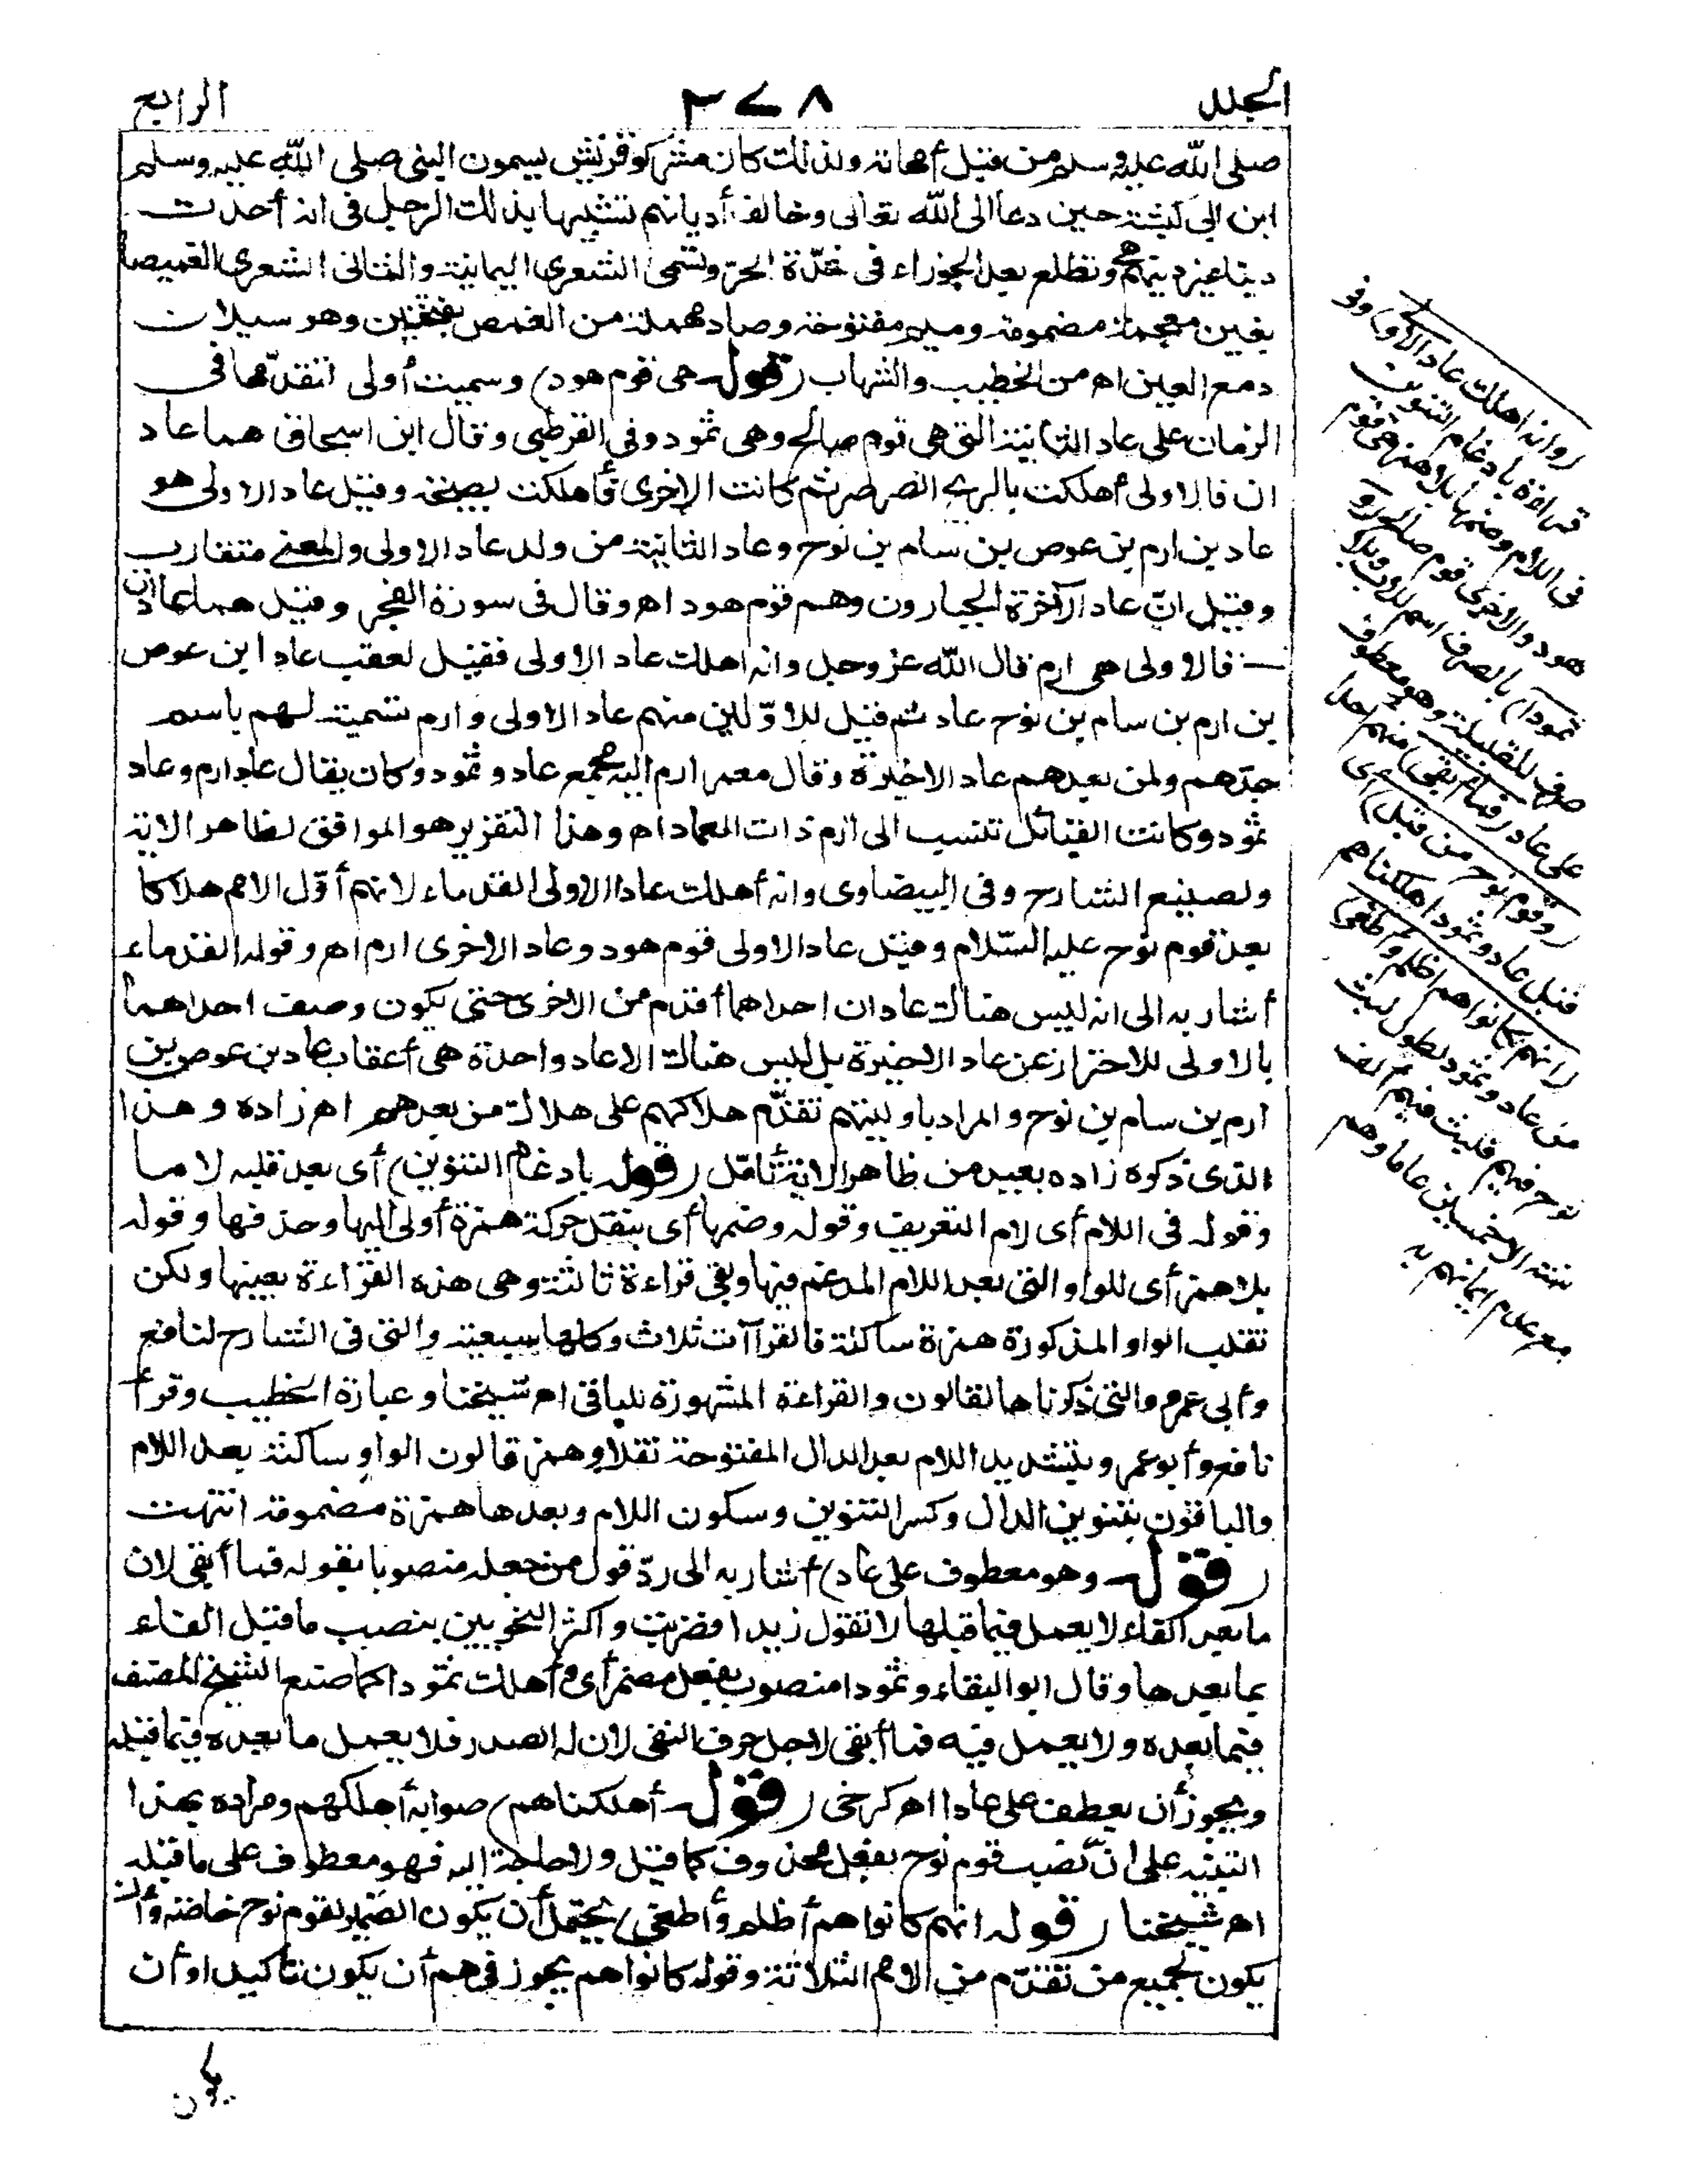 المجلد
٢٧٨
الرابع
صلى الله عليه وسلم من قبل أمهاته ولذلك كان مشركو قريش يسمون النبي صلى الله عليه وسلم
ابن ابي كبشة حين دعا الى الله تعالى وخالف أديانهم تشبيها بذلك الرجل في انه أحدث
دينا غير دينهم وتطلع بعد الجوزاء في شدّة الحرّ وتسمى الشعرى اليمانية والثاني الشعرى الغميصا
بغين معجمة مضمومة وميم مفتوحة وصاد مهملة من الغمص بفتحتين وهو سيلان
دمع العين اهـ من الخطيب والشهاب (قوله هي قوم هود) وسميت أولى لتقدّمها في
الزمان على عاد الثانية التي هي قوم صالح وهي ثمود وفي القرطبي وقال ابن اسحاق هما عاد
ان فالاولى أهلكت بالريح الصرصر ثم كانت الاخرى فأهلكت بصيحة وقيل عاد الاولى هو
عاد بن ارم بن عوص بن سام بن نوح وعاد الثانية من ولد عاد الاولى والمعنى متقارب
وقيل انّ عاد الآخرة الجبارون وهم قوم هود اهـ وقال في سورة الفجر وقيل هما عادان
فالاولى هي ارم قال الله عز وجل وانه اهلك عاد الاولى فقيل لعقب عاد ابن عوص
بن ارم بن سام بن نوح عاد ثم قيل للاوّلين منهم عاد الاولى وارم تسمية لهم باسم
جدّهم ولمن بعدهم عاد الاخيرة وقال معمر ارم اليه مجمع عاد وثمود وكان يقال عاد ارم وعاد
ثمود وكانت القبائل تنتسب الى ارم ذات العماد اهـ وهذا التقرير هو الموافق لظاهر الاية
ولصنيع الشارح وفي البيضاوى وانه أهلك عادا الاولى القدماء لانهم أوّل الامم هلاكا
بعد قوم نوح عليه السّلام وقيل عاد الاولى قوم هود وعاد الاخرى ارم اهـ وقوله القدماء
أشار به الى انه ليس هناك عادان احداهما أقدم من الاخرى حتى يكون وصف احداهما
بالاولى للاحتراز عن عاد الاخيرة بل ليس هناك الا عاد واحدة هي أعقاب عاد بن عوص بن
ارم بن سام بن نوح والمراد باوليتهم تقدّم هلاكهم على هلاك من بعدهم اهـ زاده وهذا
الذى ذكره زاده بعيد من ظاهر الاية تأمّل (قوله بادغام التنوين) أى بعد قلبه لاما
وقوله في اللام أى لام التعريف وقوله وضمها أى بنقل حركة همزة أولى اليها وحذفها وقوله
بلا همز أى للواو التي بعد اللام المدغم فيها وبقى قراءة ثالثة وهي هذه القراءة بعينها ولكن
تقلب الواو المذكورة همزة ساكنة فالقراآت ثلاث وكلها سبعية والتي في الشارح لنافع
وأبي عمرو والتي ذكرناها لقالون والقراءة المشهورة للباقي اهـ شيخنا وعبارة الخطيب وقرأ
نافع وأبو عمرو بتشديد اللام بعد الدال المفتوحة نقلا وهمز قالون الواو ساكنة بعد اللام
والباقون بتنوين الدال وكسر التنوين وسكون اللام وبعدها همزة مضمومة انتهت
(قوله وهو معطوف على عاد) أشار به الى ردّ قول من جعله منصوبا بقوله فما أبقى لان
ما بعد الفاء لا يعمل فيما قبلها لا تقول زيدا فضربت وأكثر النحويين بنصب ما قبل الفاء
بما بعدها وقال ابو البقاء وثمودا منصوب بفعل مضمر أى وأهلك ثمودا كما صنع الشيخ المصنف
فيما بعده ولا يعمل فيه فما أبقى لاجل حرف النفي لان له الصدر فلا يعمل ما بعده فيما قبله
ويجوز أن يعطف على عادا اهـ كرخى (قوله أهلكناهم) صوابه أهلكهم ومراده بهذا
التنبيه على انّ نصب قوم نوح بفعل محذوف كما قيل ولا حاجة إليه فهو معطوف على ما قبله
اهـ شيخنا (قوله انهم كانوا هم أظلم وأطغى) يحتمل أن يكون الضمير لقوم نوح خاصة وأن
يكون لجميع من تقدّم من الامم الثلاثة وقوله كانوا هم يجوز في هم أن يكون تأكيدا وأن
يكون
(وانه اهلك عاد الاولى) وفى
قراءة بادغام التنوين
فى اللام وضمها بلا همز هى قوم
هود والاخرى قوم صالح (و
ثمودا) بالصرف اسم للاب وبلا
صرف للقبيلة وهو معطوف
على عاد (فما أبقى) منهم احدا
(وقوم نوح من قبل) أى
قبل عاد وثمود اهلكناهم
(انهم كانوا هم اظلم وأطغى)
من عاد وثمود لطول لبث
نوح فيهم فلبث فيهم الف
سنة الا خمسين عاما وهم
مع عدم ايمانهم به